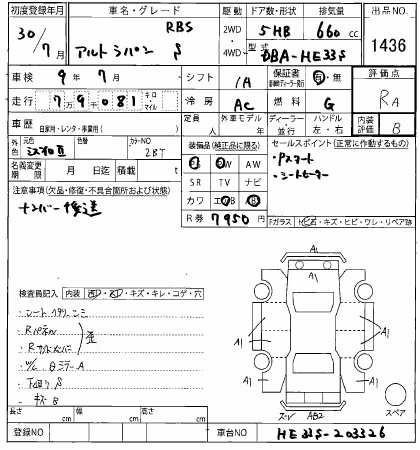 初度登録年月
車名・グレード
駆動
ドア数・形状
排気量
出品NO.
30/7月
アルトラパン S
RBS
2WD
4WD
5 HB
660 cc
型式
DBA-HE33S
1436
車検
9年7月
シフト
IA
保証書
有・無
評価点
RA
走行
7万9千081
キロ・マイル
冷房
AC
燃料
G
車歴
自家用・レンタ・事業用( )
定員
人
外車モデル
年
ディーラー・並行
ハンドル
左・右
内装評価
B
外色
元色
色替
カラーNO
2BT
装備品(純正品に限る)
セールスポイント(正常に作動するもの)
・Pスタート
・シートヒーター
名義変更期限
月 日迄
積載
t
SR TV ナビ
注意事項(欠品・修復・不具合箇所および状態)
ナンバー後送
カワ
R券
7950円
Fガラス
キズ・ヒビ・ワレ・リペア跡
A1
A1
検査員記入
内装
キズ・キレ・コゲ・穴
・シート
・Rパネル
歪
・キズ B
A1
A1
A1
A1
AB2
スペア
長さ
cm
幅
cm
高さ
cm
登録NO
車台NO
HE33S-203326